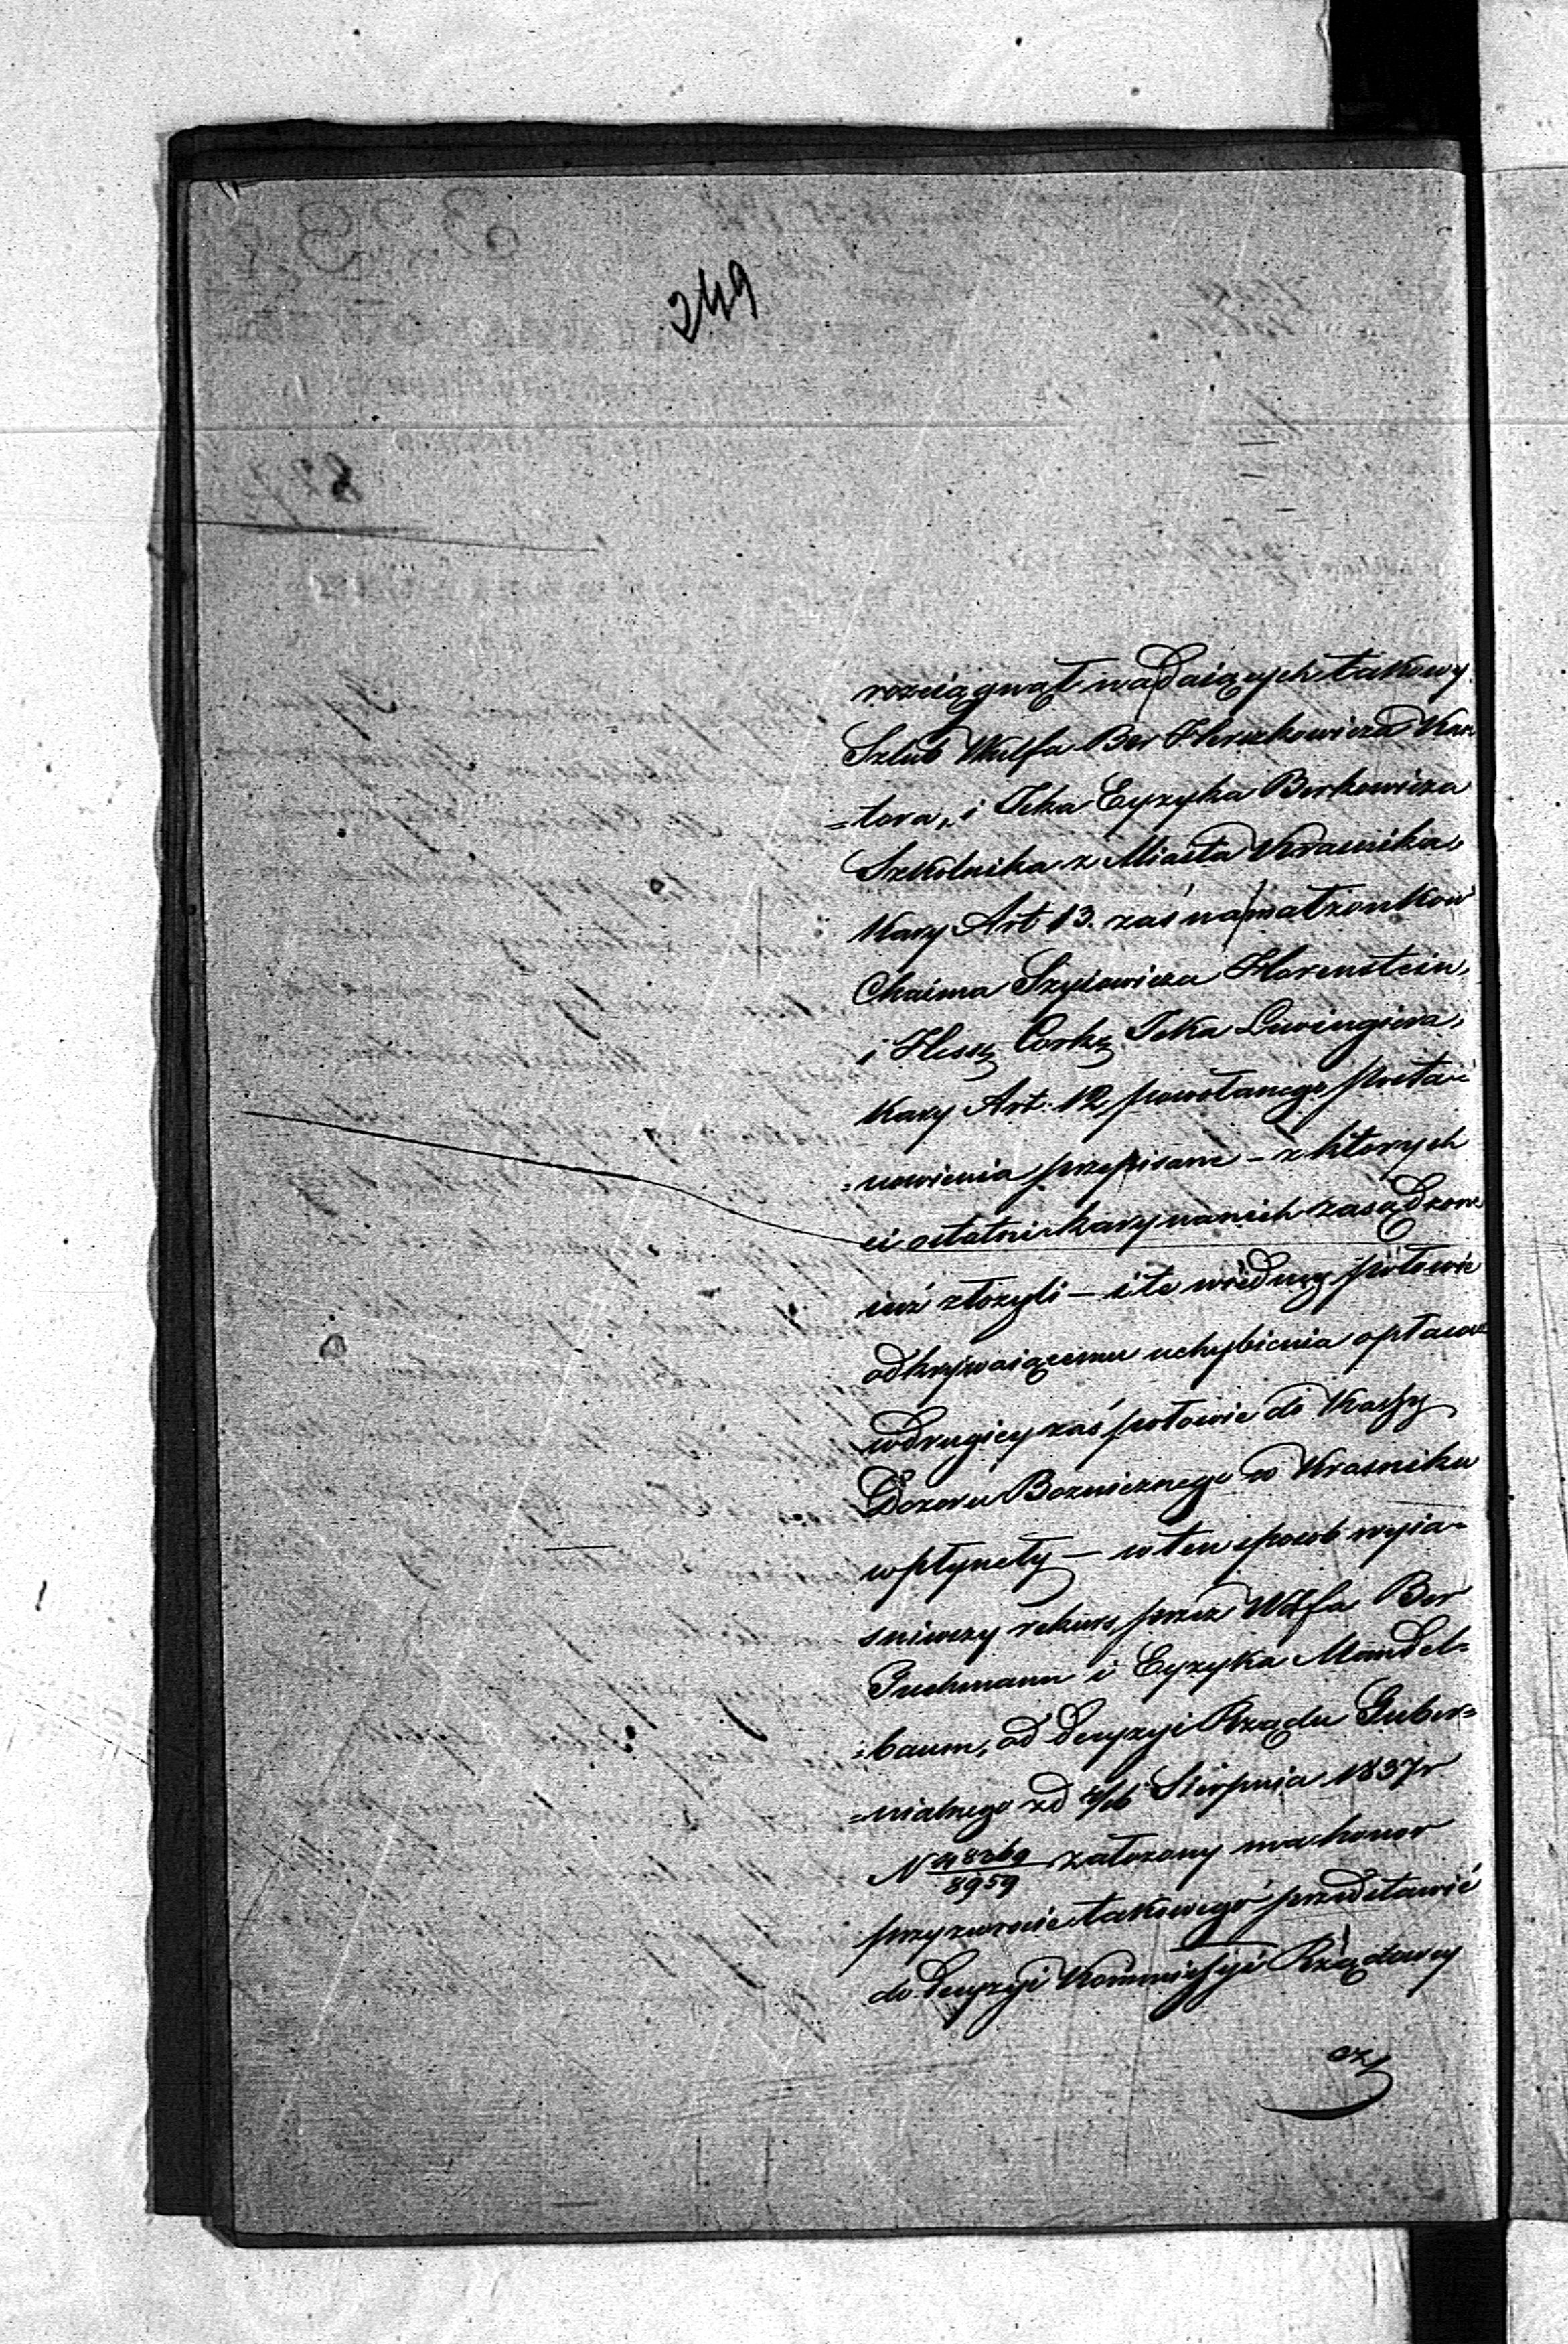 249
rozciągnął na daiących takowy
Szlub Wulfa Ber Herszkowicza Kan
=tora, i Icka Eyzyka Berkowicza
Szkolnika z Miasta Krasnika,
Kary Art 13. zaś na małzonkow
Chaima Szyiowicza Horenstein,
i Hessę Corkę Icka Lewingiera,
Kary Art: 12, powołanego posta=
=nowienia przepisane – z ktorych
ci ostatni kary na nich zasądzone
iuż złozyli – i te w iedney połowie
odkrywaiącemu uchybienia opłacone
w drugiey zaś połowie do Kassy
Dozoru Bozniczego w Krasniku
wpłynęły – w ten sposob wyia=
sniwszy rekurs przez Wolfa Ber
Fuchmann i Eyzyka Mandel=
=baum, od decyzyi Rządu Guber=
=nialnego zd 4/16 Sierpnia 1837 r
N 48369/8959 założony ma honor
przy zwrocie takowego przedstawić
do decyzyi Kommissyi Rządowey
cz